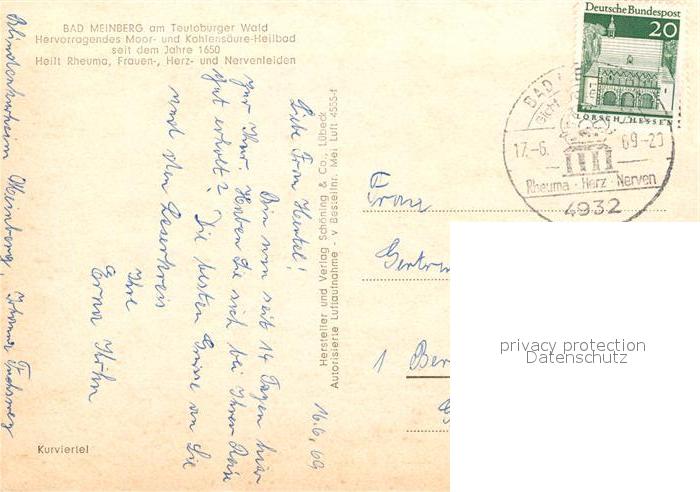 BAD MEINBERG am Teutoburger Wald
Hervorragendes Moor- und Kohlensäure-Heilbad
seit dem Jahre 1650
Heilt Rheuma, Frauen-, Herz- und Nervenleiden
Deutsche Bundespost
20
LORSCH/HESSEN
BAD
Gicht
17.-6. 69-20
Rheuma · Herz · Nerven
4932
Hersteller und Verlag Schöning & Co., Lübeck
Autorisierte Luftaufnahme - v Bestellnr. Mei Luft 4555-f
16.6.69
Liebe Frau Henkel!
Bin nun seit 14 Tagen hier
zur Kur. Haben Sie sich bei Ihrer Reise
gut erholt? Die besten Grüße an Sie
und den Leserkreis
Ihre
Erna Höhn
Blindenkurheim Meinberg,
Frau
Gertru
1 Ber
Kurviertel
privacy protection
Datenschutz